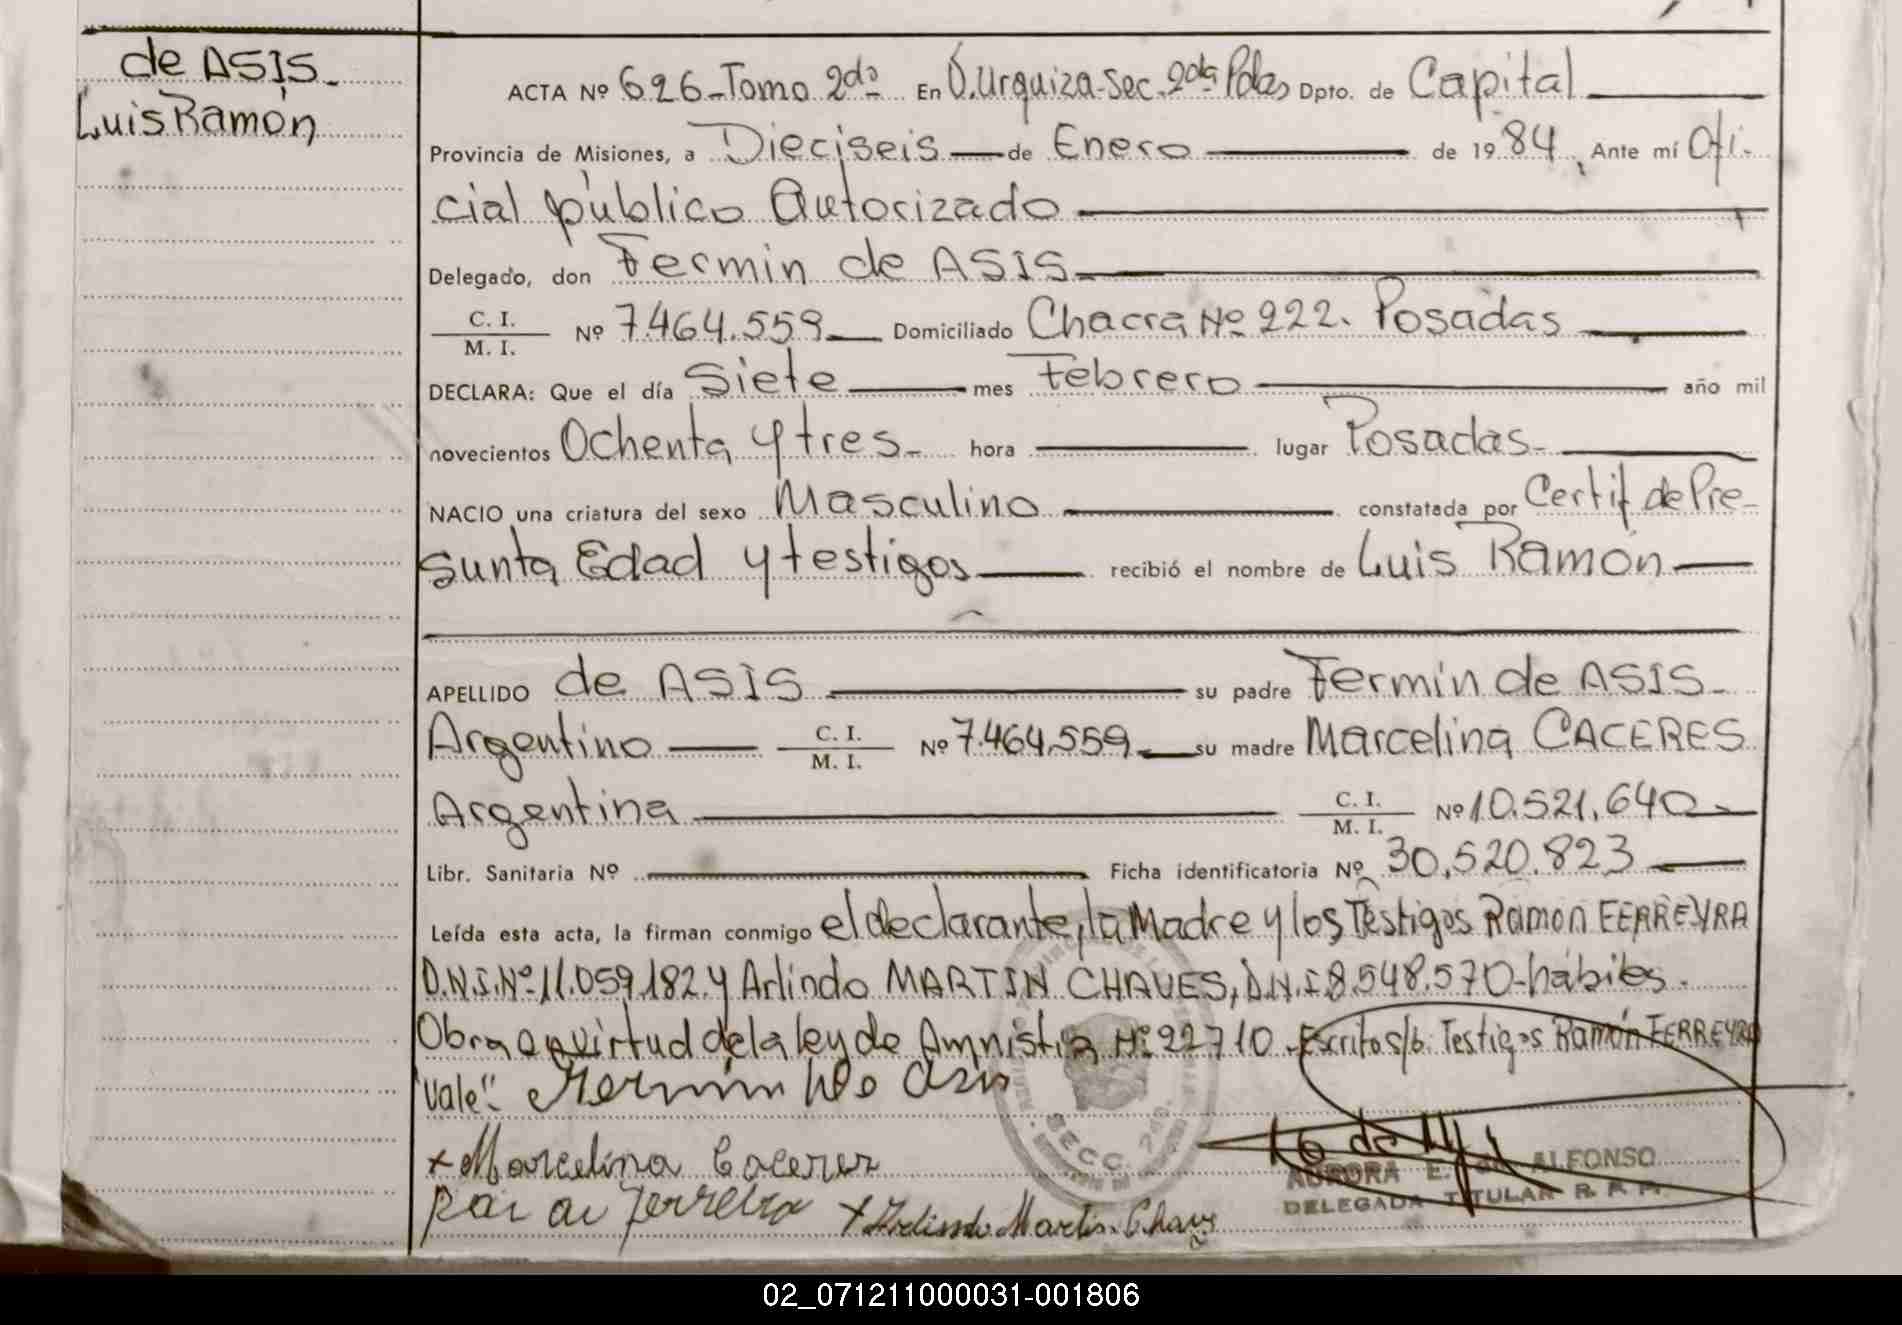 de ASIS
Luis Ramón
ACTA Nº 626-Tomo 2do En V. Urquiza-Sec. 2da Pdas Dpto. de Capital
Provincia de Misiones, a Dieciseis de Enero de 19 84, Ante mí Ofi-
cial público Autorizado
Delegado, don Fermin de ASIS
C. I. / M. I. Nº 7.464.559 Domiciliado Chacra Nº 222. Posadas
DECLARA: Que el día Siete mes Febrero año mil
novecientos Ochenta y tres hora lugar Posadas
NACIO una criatura del sexo Masculino constatada por Certif de Pre-
sunta Edad y testigos recibió el nombre de Luis Ramón
APELLIDO de ASIS su padre Fermin de ASIS
Argentino C. I. / M. I. Nº 7.464.559 su madre Marcelina CACERES
Argentina C. I. / M. I. Nº 10.521.640
Libr. Sanitaria Nº Ficha identificatoria Nº 30.520.823
Leída esta acta, la firman conmigo el declarante, la Madre y los Testigos Ramón FERREYRA
D.N.I. Nº 11.059.182 y Arlindo MARTIN CHAVES, D.N.I. 8.548.570-hábiles.
Obra en virtud de la ley de Amnistia Nº 22710. Escrito s/b. Testigos Ramón FERREYRA
"Vale" Fermin de Asis
+ Marcelina Cacerer
Ferreira + Arlindo Martin Chaves
SECC. 2da.
AURORA E. de ALFONSO
DELEGADA TITULAR R. P. P.
02_071211000031-001806